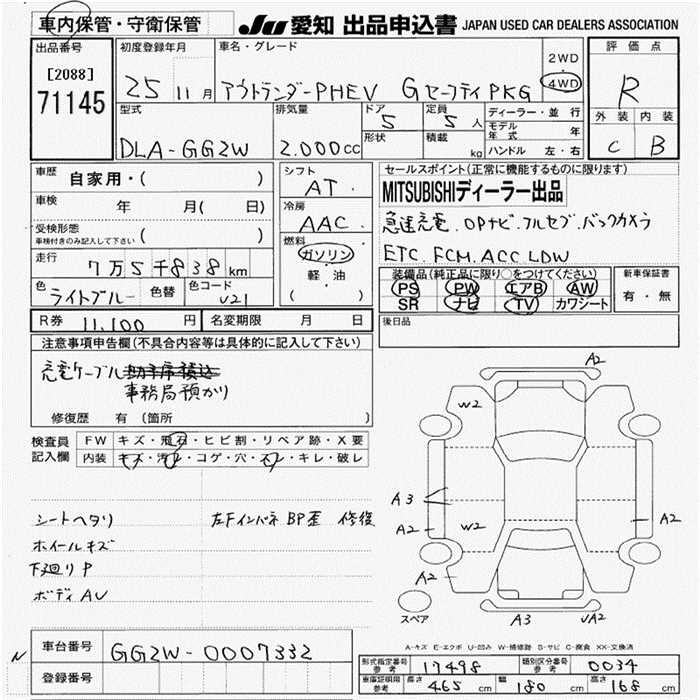 車内保管・守衛保管 JU 愛知 出品申込書 JAPAN USED CAR DEALERS ASSOCIATION
出品番号 初度登録年月 車名・グレード 評価点
[2088] 25 11月 アウトランダーPHEV GセーフティPKG 2WD 4WD R
71145
型式 排気量 ドア 定員 ディーラー・並行 外装 内装
5 5人 モデル年式 年
DLA-GG2W 2.000cc 形状 積載 kg ハンドル 左・右 C B
車歴 自家用・( ) シフト AT. セールスポイント(正常に機能するものに限ります)
MITSUBISHIディーラー出品
車検 年 月( 日) 冷房 AAC. 急速充電.OPナビ.フルセブ.バックカメラ
受検形態 車検付きのみ記入して下さい ( ) 燃料 ガソリン ETC.FCM.ACC.LDW
走行 7万5千838km 軽・油 装備品(純正品に限り○をつけてください) 新車保証書
色 ライトブルー 色替 色コード U21 ( ) PS PW エアB AW 有・無
SR ナビ TV カワシート
R券 11,100円 名変期限 月 日 後日品
注意事項申告欄(不具合内容等は具体的に記入して下さい)
充電ケーブル
事務局預かり
修復歴 有(箇所 )
検査員 FW キズ・飛石・ヒビ割・リペア跡・X要
記入欄 内装 キズ・汚レ・コゲ・穴・スレ・キレ・破レ
シートヘタリ 左Fインパネ BP歪 修復
ホイールキズ
下廻りP
ボディAU
A2
W2
A3
A2 W2 A2
A2
スペア A3 UA2
A-キズ E-エクボ U-凹み W-補修跡 S-サビ C-腐食 XX-交換済
N 車台番号 GG2W-0007332
登録番号
型式指定番号 参考 17498 類別区分番号 参考 0034
車庫証明用 参考 長さ 465cm 幅 180cm 高さ 168cm